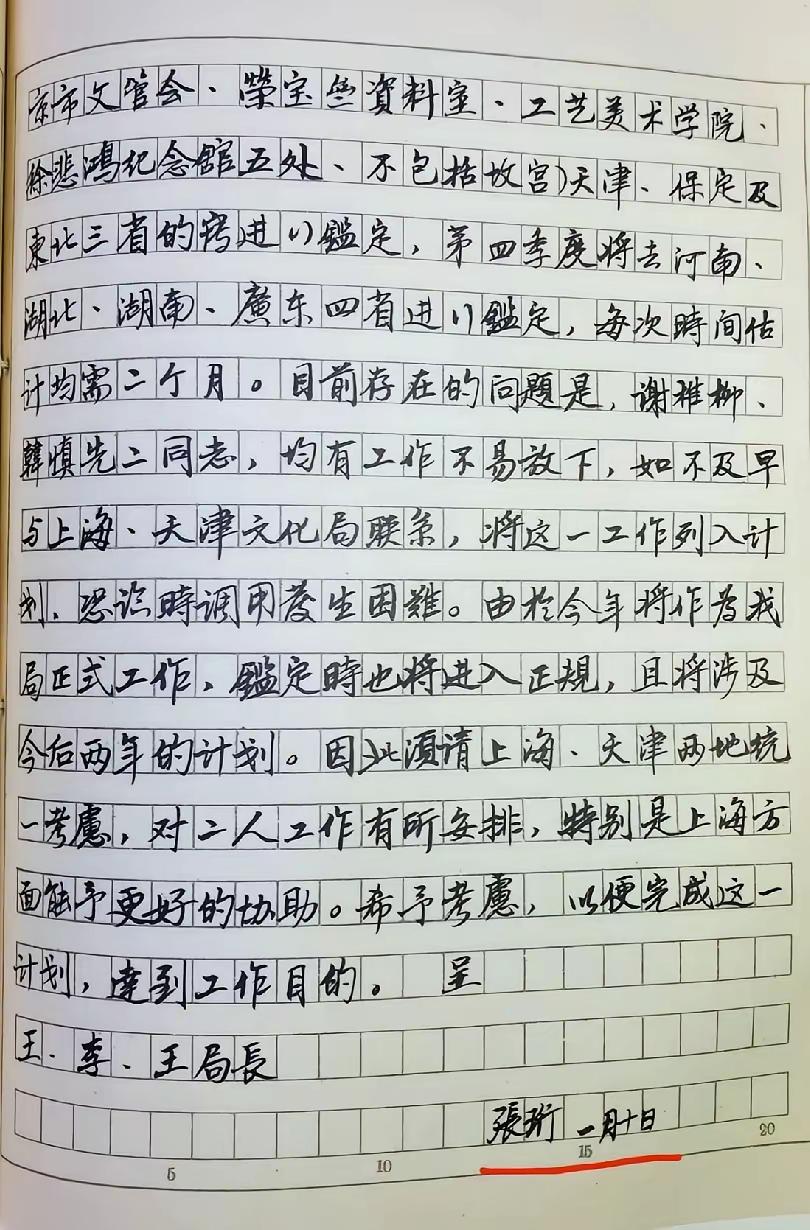 京市文管会、榮宝斋資料室、工艺美术学院、
徐悲鴻纪念館五处、不包括故宫)天津、保定及
東北三省的進行鑑定，第四季度将去河南、
湖北、湖南、廣东四省進行鑑定，每次時间估
计均需二个月。目前存在的问題是，谢稚柳、
韓慎先二同志，均有工作不易放下，如不及早
与上海、天津文化局联系，将这一工作列入计
划，恐临時调用發生困難。由於今年将作为我
局正式工作，鑑定時也将進入正規，且将涉及
今后两年的计划。因此須请上海、天津两地统
一考慮，对二人工作有所安排，特别是上海方
面能予更好的协助。希予考慮，以便完成这一
计划，達到工作目的。 呈
王、李、王局長
張珩 一月十日
5 10 15 20